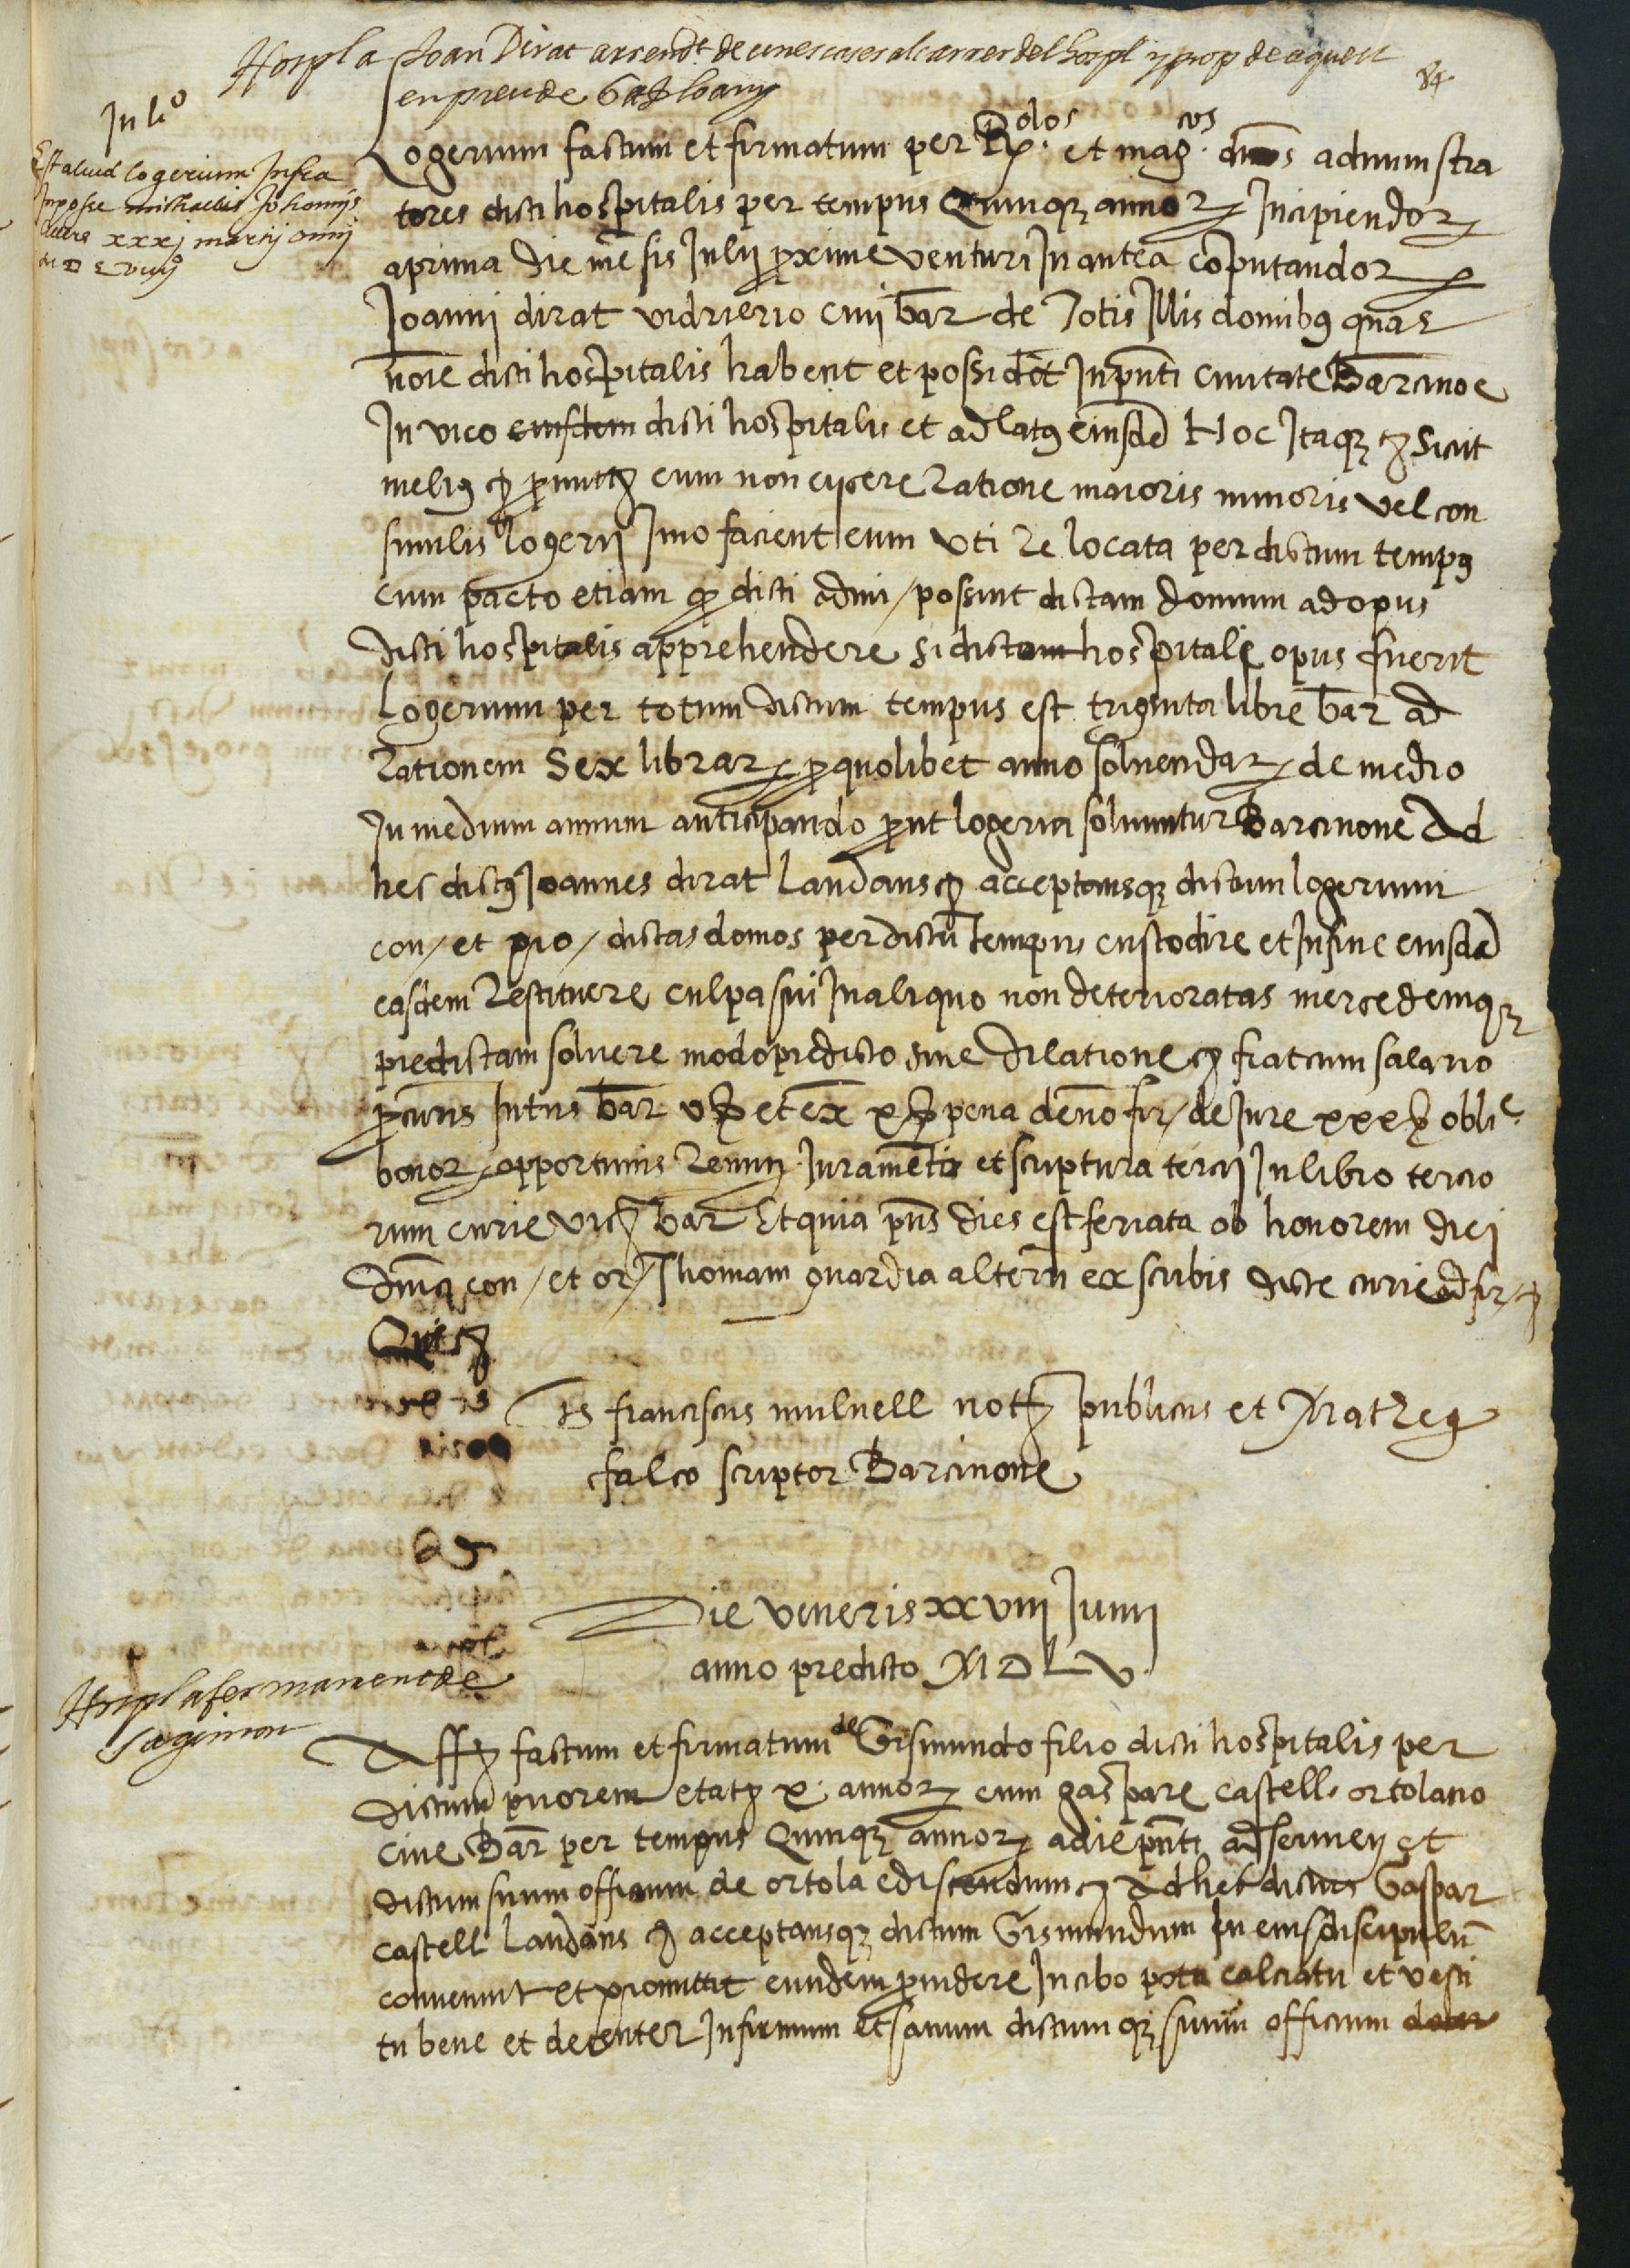 Hospl a Joan Dirat arrendt de unes cases al carrer del hospl y prop de aquell
en preu de 6 ll lo any
84
In lio
Est aliud logerium Infra
In posse michaelis Johannis
sub die xxxj martij anni
M D L viiij
Logerium factum et firmatum per Rdos et magcos dnos administra
tores dicti hospitalis per tempus Quinqz annoz Incipiendoz
a prima die mēsis Julij proxime venturi In antea cōputandoz
Joanni dirat vidrierio civi bar de Totis Illis domibus quas
noīe dicti hospitalis habent et possidēt In pnti civitate Barcinoe
In vico eiusdem dicti hospitalis et ad latus eiusdē Hoc Itaqz etc Sicut
melius etc promittētes eum non eijcere Ratione maioris minoris vel con
similis logerij Imo facient eum uti Re locata per dictum tempus
cum pacto etiam quod dicti admi/ possint dictam domum ad opus
dicti hospitalis apprehendere si dictam hospitale opus fuerit
Logerium per totum dictum tempus est triginta libre bar ad
Rationem Sex libraz pro quolibet anno solvendaz de medio
In medium annum anticipando prout logeria solvuntur Barcinone Ad
hec dictus Joannes dirat Laudans etc acceptansqz dictum logerium
con/ et pro/ dictas domos per dictū tempus custodire et In fine eiusdē
easdem Restituere culpa sui In aliquo non deterioratas mercedemqz
predictam solvere modo predicto sine dilatione etc fiat cum salario
procuris Intus bar v ß et ex x ß pena de no fir/ de Jure xxx ß oblie
bonoz opportunis Renun Juramēto et scriptura tercij In libro tercio
rum curie vicij bar Et quia pns dies est feriata ob honorem diei
dnica con/ et or/ Thomam guardia alterū ex scribis dicte curie ad fir/ etc
Quē etc
Ts franciscus mulnell nott publicus et Mat Reg
falco scriptor Barcinone
Die veneris xxviij Junij
anno predicto M D L V
Hospl afermament de
Segimon
Aff factum et firmatum de Gismundo filio dicti hospitalis per
dictum priorem etatis x annoz cum gaspare castell ortolano
cive Bar per tempus Quinqz annoz a die pnti ad servien et
dictum suum officium de ortola ediscendum etc Ad hec dictus Gaspar
castell Laudans etc acceptansqz dictum Gismundum In eius discipulū
convenit et promittit eundem providere In cibo potu calciatu et vesti
tu bene et decenter Infirmum et sanum dictumqz suum officium docer